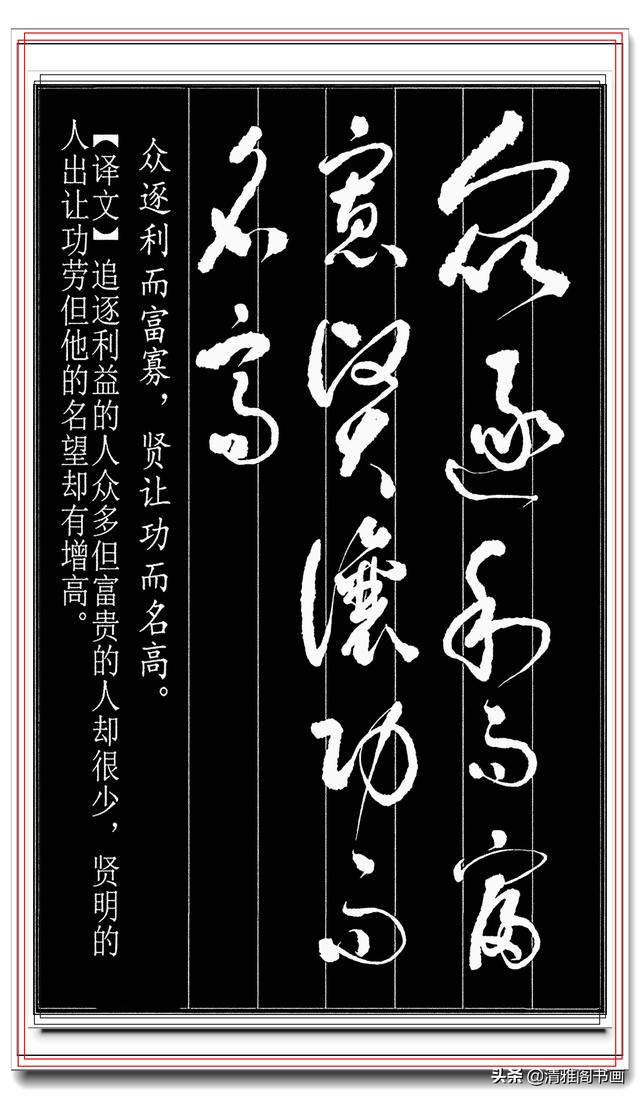 众逐利而富
寡贤让功而
名高
众逐利而富寡，贤让功而名高。
【译文】追逐利益的人众多但富贵的人却很少，贤明的
人出让功劳但他的名望却有增高。
头条 @清雅阁书画